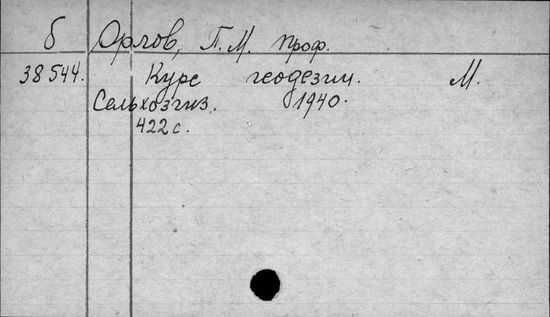 б Орлов, П. М. проф.
38544. Курс геодезии. М.
Сельхозгиз. 1940.
422 с.